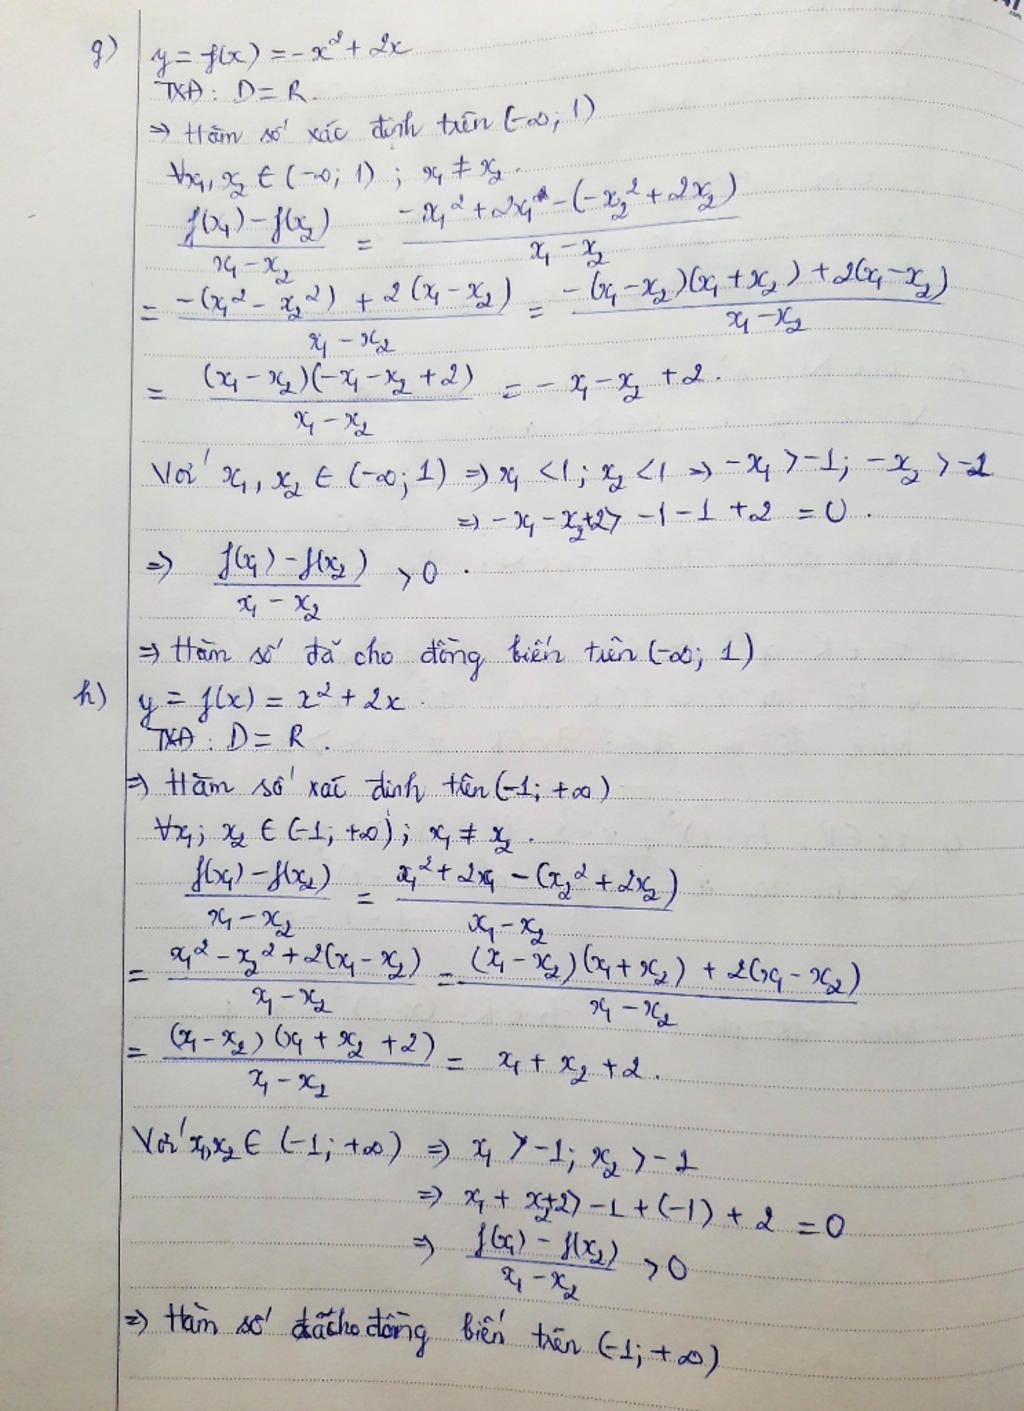 g) y = f(x) = -x² + 2x
TXĐ: D = R.
⇒ Hàm số xác định trên (-∞; 1)
∀x₁, x₂ ∈ (-∞; 1) ; x₁ ≠ x₂.
(f(x₁) - f(x₂))/(x₁ - x₂) = (-x₁² + 2x₁ - (-x₂² + 2x₂))/(x₁ - x₂)
= (-(x₁² - x₂²) + 2(x₁ - x₂))/(x₁ - x₂) = (-(x₁ - x₂)(x₁ + x₂) + 2(x₁ - x₂))/(x₁ - x₂)
= ((x₁ - x₂)(-x₁ - x₂ + 2))/(x₁ - x₂) = -x₁ - x₂ + 2.
Với x₁, x₂ ∈ (-∞; 1) ⇒ x₁ < 1; x₂ < 1 ⇒ -x₁ > -1; -x₂ > -1
⇒ -x₁ - x₂ + 2 > -1 - 1 + 2 = 0.
⇒ (f(x₁) - f(x₂))/(x₁ - x₂) > 0.
⇒ Hàm số đã cho đồng biến trên (-∞; 1)
h) y = f(x) = x² + 2x.
TXĐ: D = R.
⇒ Hàm số xác định trên (-1; +∞)
∀x₁; x₂ ∈ (-1; +∞); x₁ ≠ x₂.
(f(x₁) - f(x₂))/(x₁ - x₂) = (x₁² + 2x₁ - (x₂² + 2x₂))/(x₁ - x₂)
= (x₁² - x₂² + 2(x₁ - x₂))/(x₁ - x₂) = ((x₁ - x₂)(x₁ + x₂) + 2(x₁ - x₂))/(x₁ - x₂)
= ((x₁ - x₂)(x₁ + x₂ + 2))/(x₁ - x₂) = x₁ + x₂ + 2.
Với x₁, x₂ ∈ (-1; +∞) ⇒ x₁ > -1; x₂ > -1
⇒ x₁ + x₂ + 2 > -1 + (-1) + 2 = 0
⇒ (f(x₁) - f(x₂))/(x₁ - x₂) > 0
⇒ Hàm số đã cho đồng biến trên (-1; +∞)